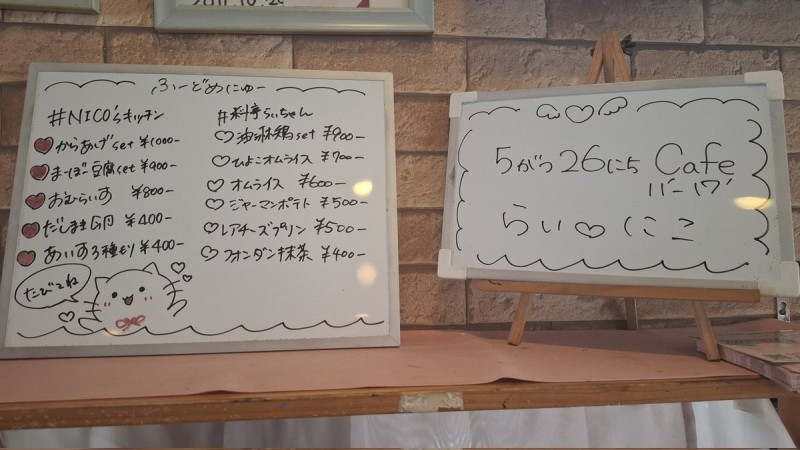 2011.10.20
ふーどめにゅー
#NICO'sキッチン
からあげset ¥1000-
まーぼー豆腐set ¥900-
おむらいす ¥800-
だしまき卵 ¥400-
あいす3種もり ¥400-
たびてね
#料亭らぃちゃん
油淋鶏set ¥900-
ひよこオムライス ¥700-
オムライス ¥600-
ジャーマンポテト ¥500-
レアチーズプリン ¥500-
フォンダン抹茶 ¥400-
5がつ26にち Cafe
11-17
らぃ♡にこ